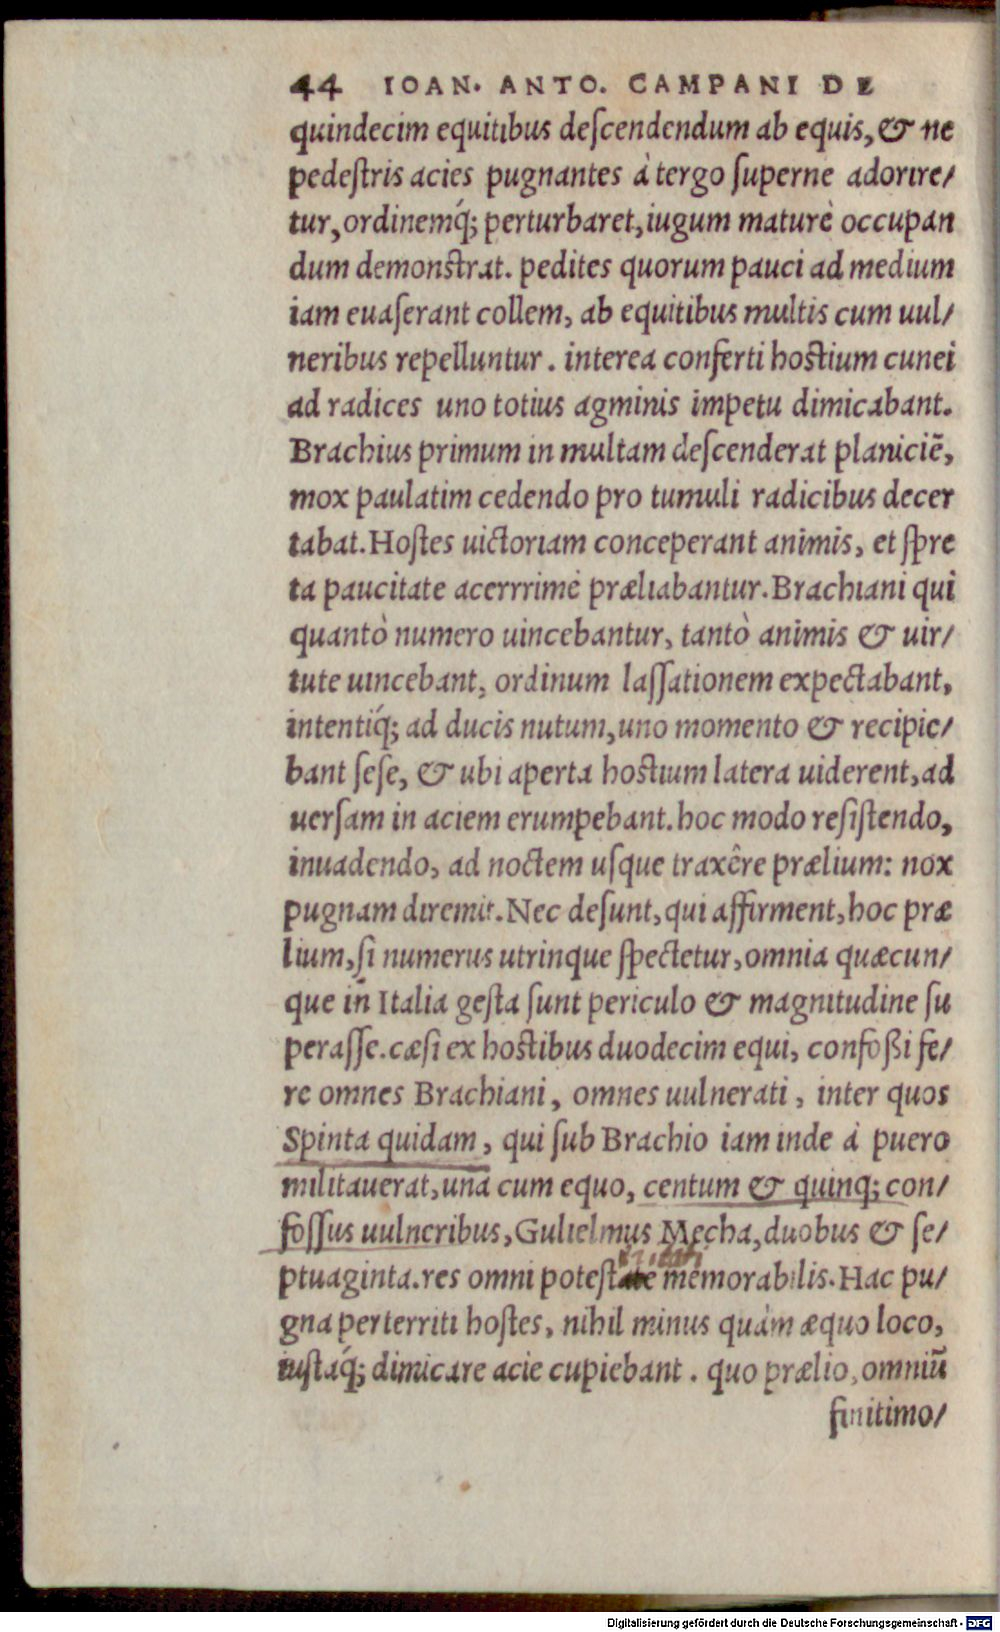 44 IOAN. ANTO. CAMPANI DE
quindecim equitibus deſcendendum ab equis, & ne
pedeſtris acies pugnantes à tergo ſuperne adorire/
tur, ordinemq́; perturbaret, iugum maturè occupan
dum demonſtrat. pedites quorum pauci ad medium
iam euaſerant collem, ab equitibus multis cum uul/
neribus repelluntur. interea conferti hoſtium cunei
ad radices uno totius agminis impetu dimicabant.
Brachius primum in multam deſcenderat planiciē,
mox paulatim cedendo pro tumuli radicibus decer
tabat. Hoſtes uictoriam conceperant animis, et ſpre
ta paucitate acerrrimè præliabantur. Brachiani qui
quantò numero uincebantur, tantò animis & uir/
tute uincebant, ordinum laſſationem expectabant,
intentiq́; ad ducis nutum, uno momento & recipie/
bant ſeſe, & ubi aperta hoſtium latera uiderent, ad
uerſam in aciem erumpebant. hoc modo reſiſtendo,
inuadendo, ad noctem uſque traxêre prælium: nox
pugnam diremit. Nec deſunt, qui affirment, hoc præ
lium, ſi numerus utrinque ſpectetur, omnia quæcun/
que in Italia geſta ſunt periculo & magnitudine ſu
peraſſe. cæſi ex hoſtibus duodecim equi, confoßi fe/
re omnes Brachiani, omnes uulnerati, inter quos
Spinta quidam, qui ſub Brachio iam inde à puero
militauerat, unà cum equo, centum & quinq; con/
foſſus uulneribus, Gulielmus Mecha, duobus & ſe/
ptuaginta. res omni poteſtate memorabilis. Hac pu/
gna perterriti hoſtes, nihil minus quàm æquo loco,
iuſtaq́; dimicare acie cupiebant. quo prælio, omniū
finitimo/
Digitalisierung gefördert durch die Deutsche Forschungsgemeinschaft - DFG